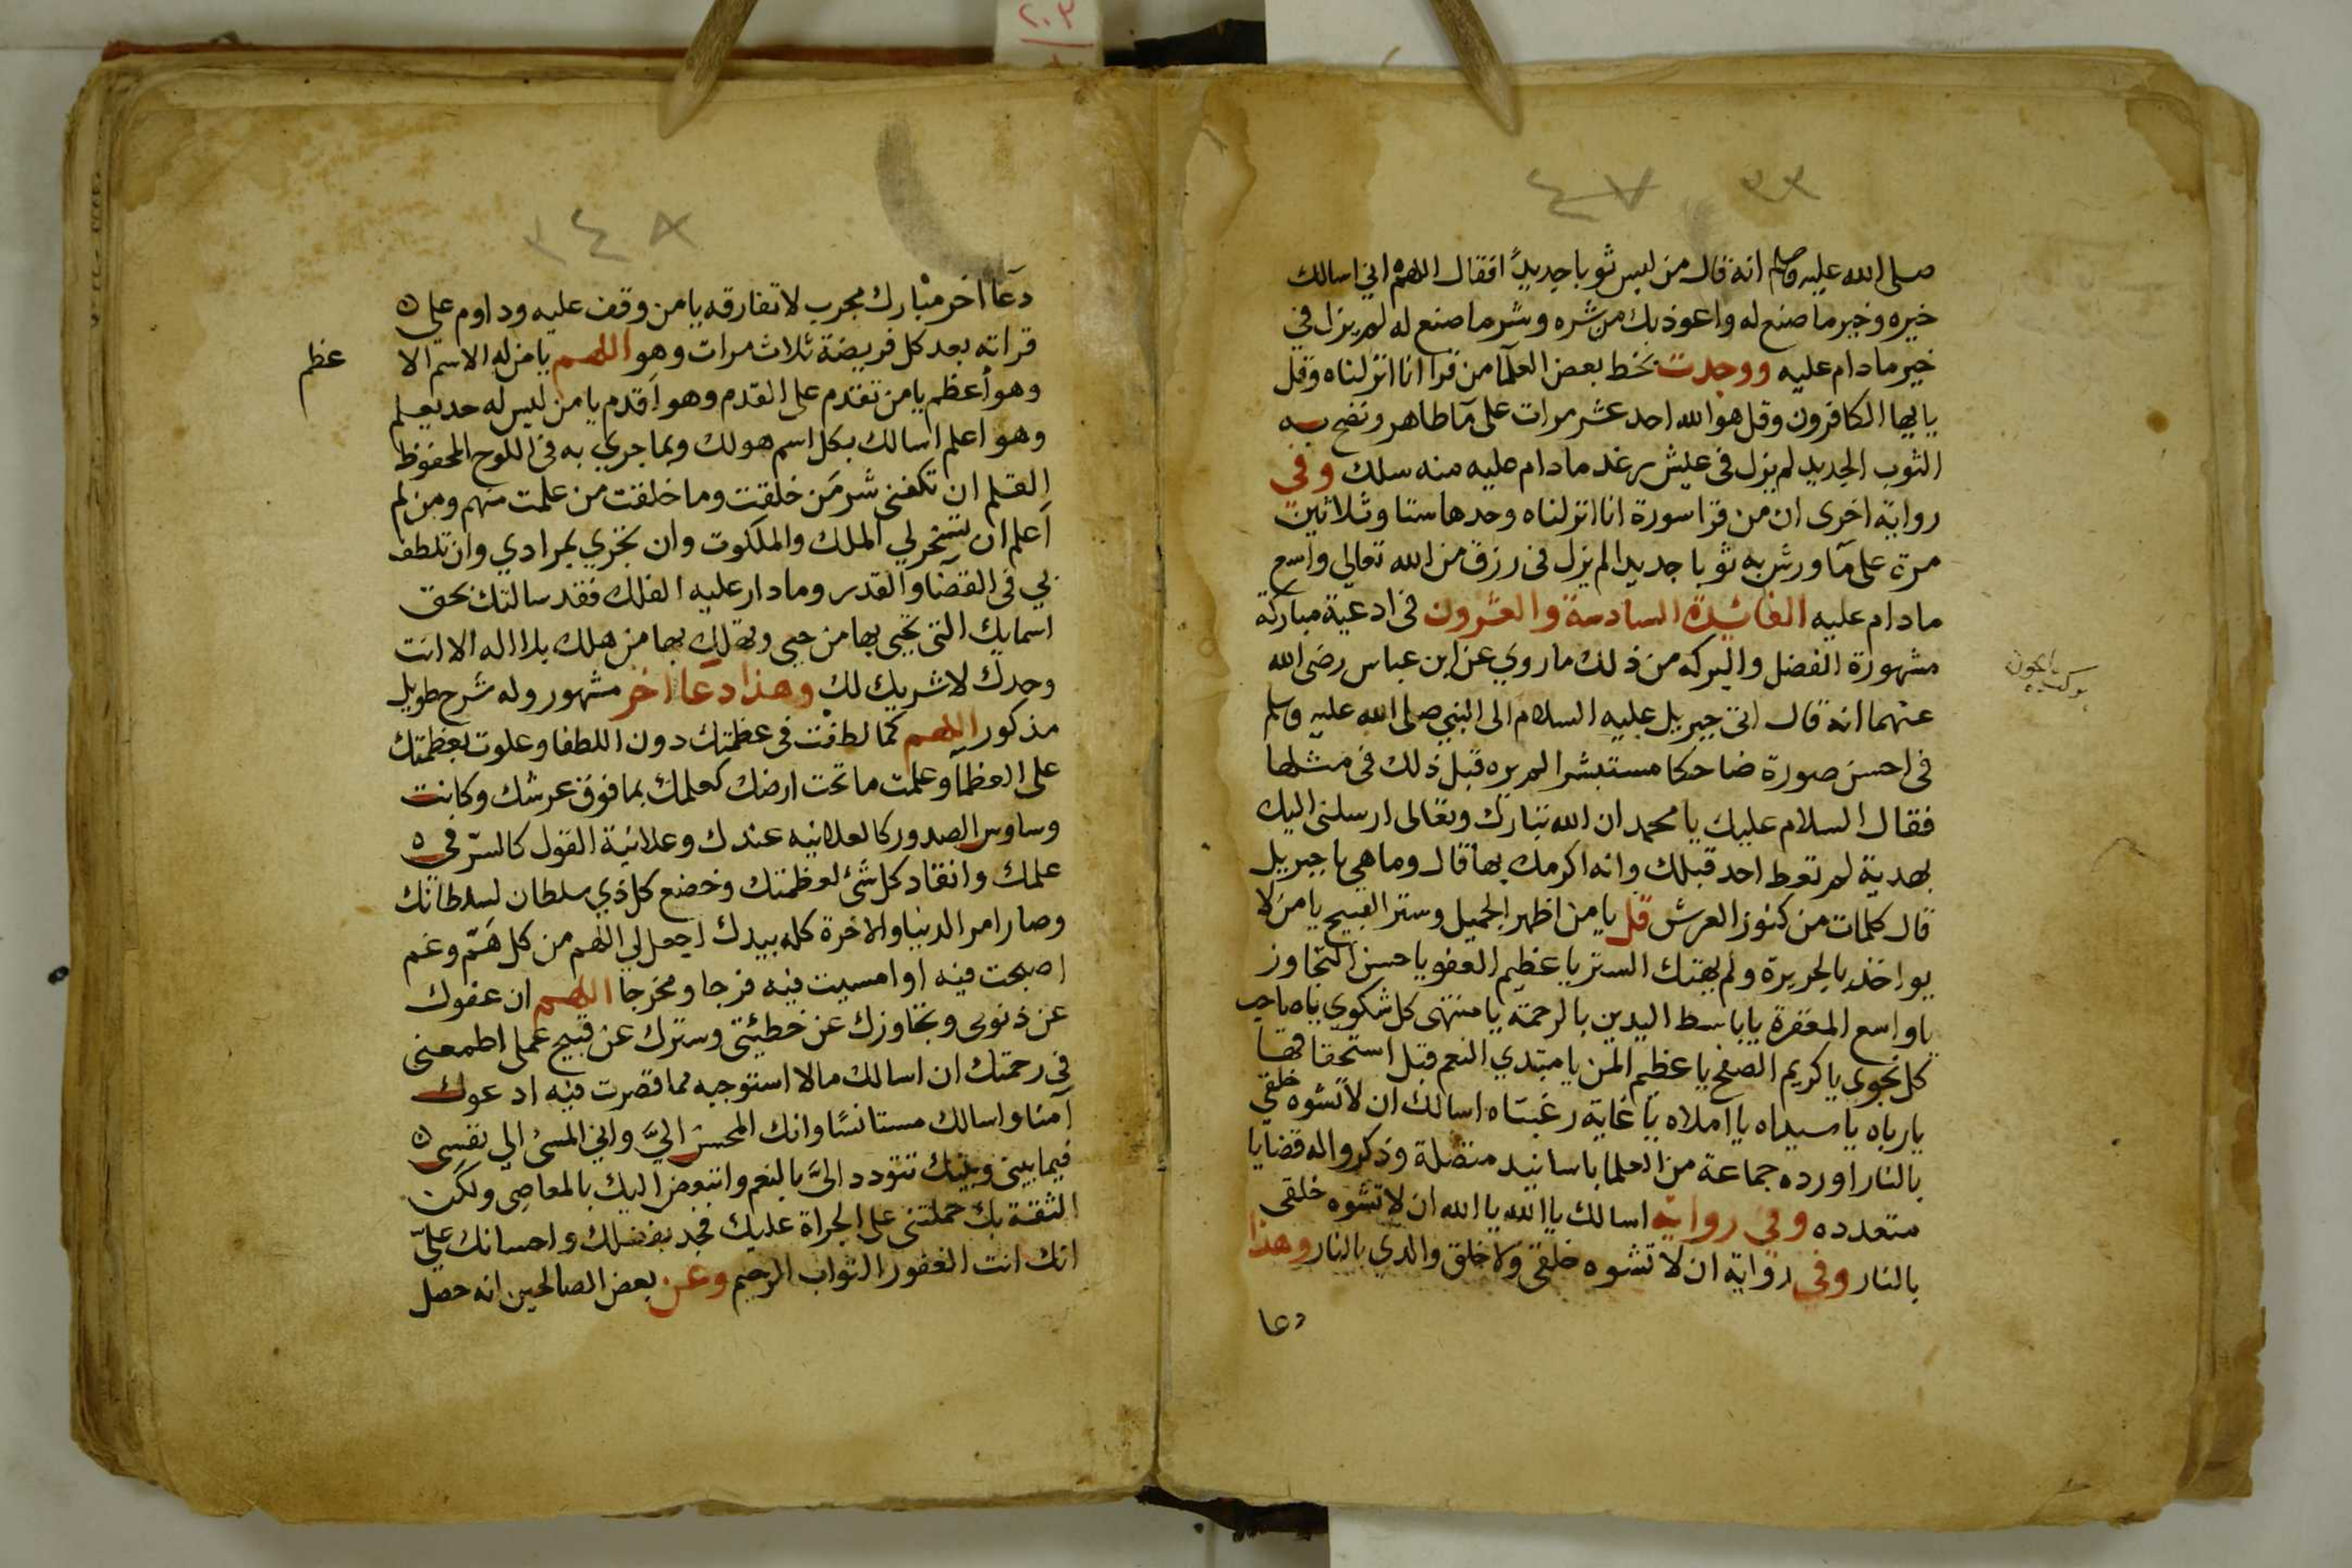 ٢٠٣
٣٣ ٤٧
صلى الله عليه وسلم انه قال من لبس ثوبا جديدًا فقال اللهم اني اسالك
خيره وخير ما صنع له واعوذ بك من شره وشر ما صنع له لم يزل في
خير مادام عليه ووجدت بخط بعض العلمآ من قرا انا انزلناه وقل
يا ايها الكافرون وقل هو الله احد عشر مرات على مآ طاهر ونضح به
الثوب الجديد لم يزل في عيش رغد مادام عليه منه سلك وفي
رواية اخرى ان من قرا سورة انا انزلناه وحدها ستا وثلاثين
مرة على مآ ورش به ثوبا جديدا لم يزل في رزق من الله تعالى واسع
مادام عليه الفائدة السادسة والعشرون في ادعية مباركة
مشهورة الفضل والبركه من ذلك ما روي عن ابن عباس رضى الله
عنهما انه قال اتى جبريل عليه السلام الى النبي صلى الله عليه وسلم
في احسن صورة ضاحكا مستبشرا لم يره قبل ذلك في مثلها
فقال السلام عليك يا محمد ان الله تبارك وتعالى ارسلني اليك
بهدية لم تعط احد قبلك وانه اكرمك بها قال وما هي يا جبريل
قال كلمات من كنوز العرش قل يا من اظهر الجميل وستر القبيح يا من لا
يواخذ بالجريرة ولم يهتك الستر يا عظيم العفو يا حسن التجاوز
يا واسع المغفرة يا باسط اليدين بالرحمة يا منتهى كل شكوي يا صاحب
كل نجوى يا كريم الصفح يا عظيم المن يا مبتدي النعم قبل استحقاقها
يا رباه يا سيداه يا املاه يا غاية رغبتاه اسالك ان لا تشوه خلقي
بالنار اورده جماعة من العلما باسانيد متصلة وذكروا له قضايا
متعدده وفي رواية اسالك يا الله يا الله ان لا تشوه خلقى
بالنار وفي رواية ان لا تشوه خلقي ولا خلق والدي بالنار وهذا
دعا
٣٤٨
دعآ اخر مبارك مجرب لا تفارقه يا من وقف عليه وداوم على
قراته بعد كل فريضة ثلاث مرات وهو اللهم يا من له الاسم الا
عظم
وهو أعظم يا من تقدم على القدم وهو اقدم يا من ليس له حد يعلم
وهو اعلم اسالك بكل اسم هو لك وبما جري به في اللوح المحفوظ
القلم ان تكفنى شر من خلقت وما خلقت من علمت منهم ومن لم
أعلم ان تسخر لي الملك والملكوت وان تجزي بمرادي وان تلطف
بي في القضآ والقدر وما دار عليه الفلك فقد سالتك بحق
اسمايك التى يحيى بها من حيى ويهلك بها من هلك بلا اله الا انت
وحدك لا شريك لك وهذا دعا اخر مشهور وله شرح طويل
مذكور اللهم كما لطفت في عظمتك دون اللطفا وعلوت بعظمتك
على العظمآ وعلمت ما تحت ارضك كعلمك بما فوق عرشك وكانت
وساوس الصدور كالعلانيه عندك وعلانية القول كالسرّ في
علمك وانقاد كل شئ لعظمتك وخضع كل ذي سلطان لسلطانك
وصار امر الدنيا والاخرة كله بيدك اجعل لي اللهم من كل هَمّ وغم
اصبحت فيه او امسيت فيه فرجا ومخرجا اللهم ان عفوك
عن ذنوبى وتجاوزك عن خطيئتي وسترك عن قبيح عملى اطمعنى
في رحمتك ان اسالك مالا استوجبه مما قصرت فيه ادعوك
آمنا واسالك مستانسًا وانك المحسن اليَّ واني المسئ الي نفسى
فيما بيني وبينك تتودد اليَّ بالنعم واتبغض اليك بالمعاصى ولكن
الثقة بك حملتنى على الجراة عليك فجد بفضلك واحسانك عليّ
انك انت الغفور التواب الرحيم وعن بعض الصالحين انه حصل